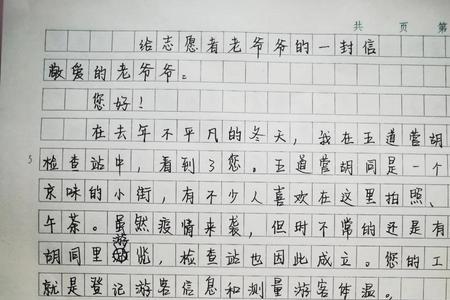 共 页 第
给志愿者老爷爷的一封信
敬爱的老爷爷。
您好！
在去年不平凡的冬天，我在五道营胡
5
检查站中，看到了您。五道营胡同是一个
京味的小街，有不少人喜欢在这里拍照、
午茶。虽然疫情来袭，但时不常的还是有
游
胡同里览，检查站也因此成立。您的工
就是登记游客信息和测量游客体温。